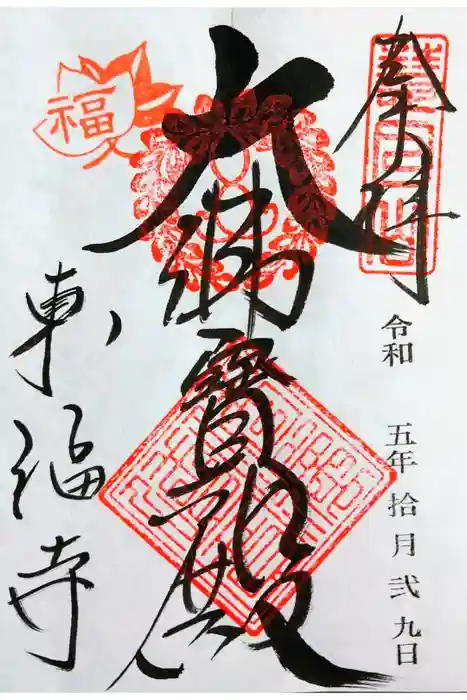 奉拝
令和 五年 拾月 弐九日
大佛寳殿
東福寺
福